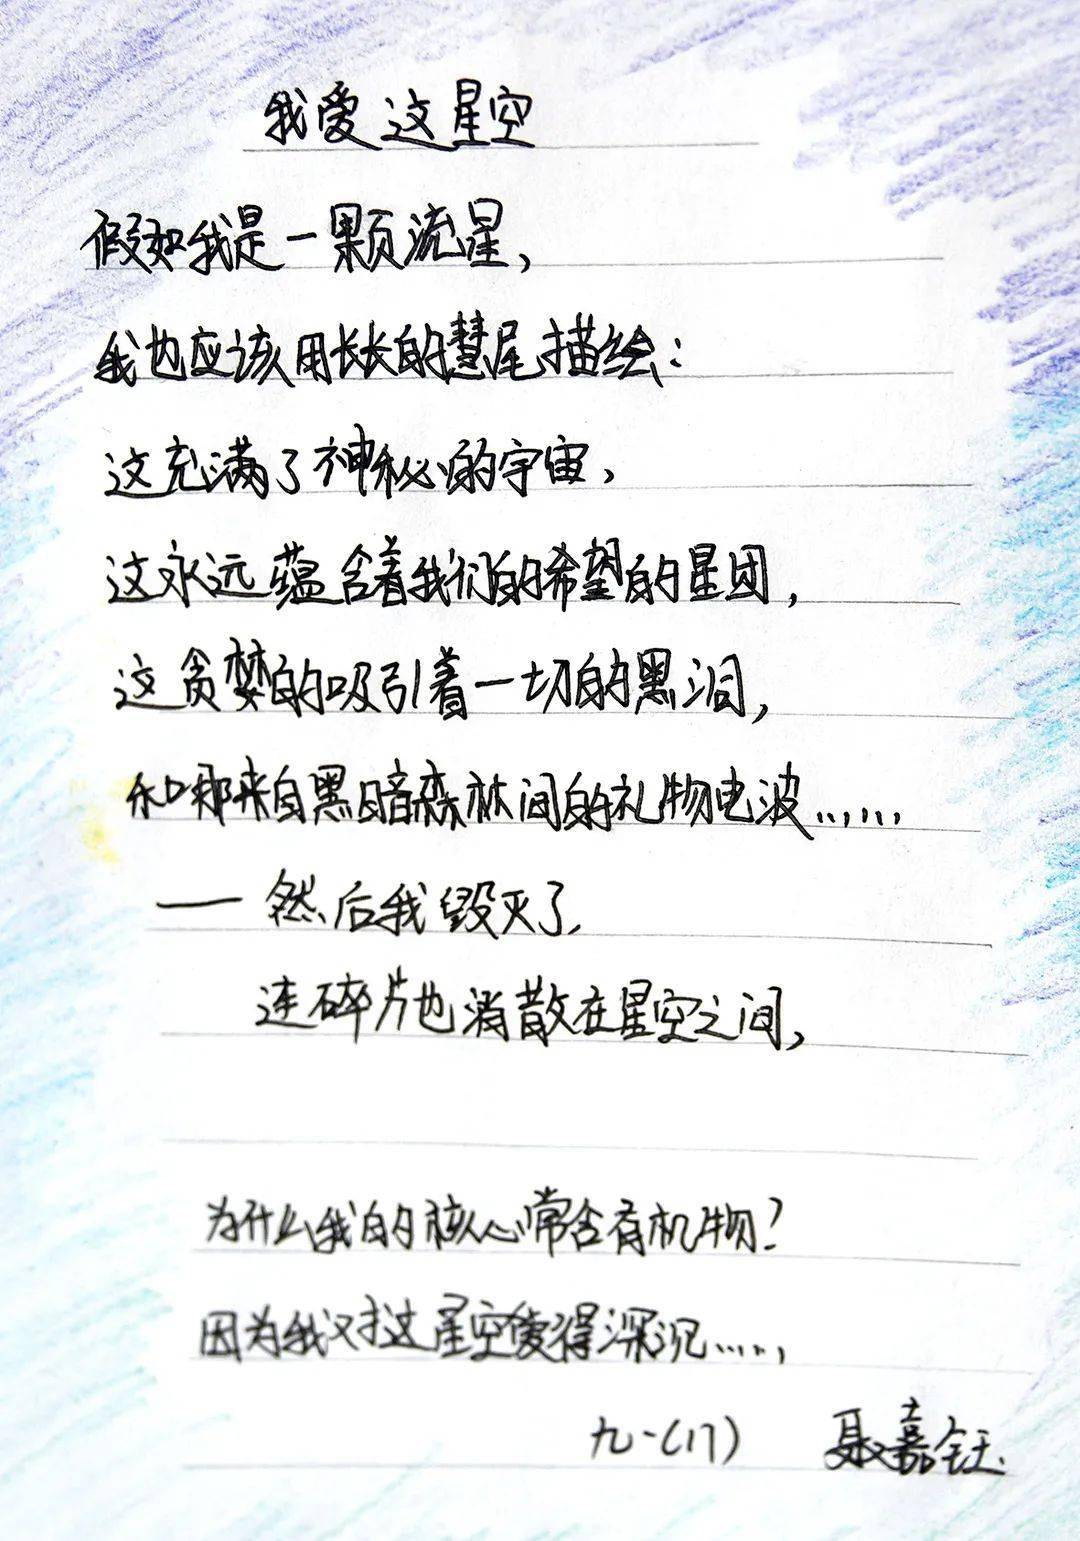 我爱这星空
假如我是一颗流星，
我也应该用长长的慧尾描绘：
这充满了神秘的宇宙，
这永远蕴含着我们的希望的星团，
这贪婪的吸引着一切的黑洞，
和那来自黑暗森林间的礼物电波……
——然后我毁灭了，
连碎片也消散在星空之间，
为什么我的核心常含有机物？
因为我对这星空爱得深沉……
九·(17) 聂嘉钰